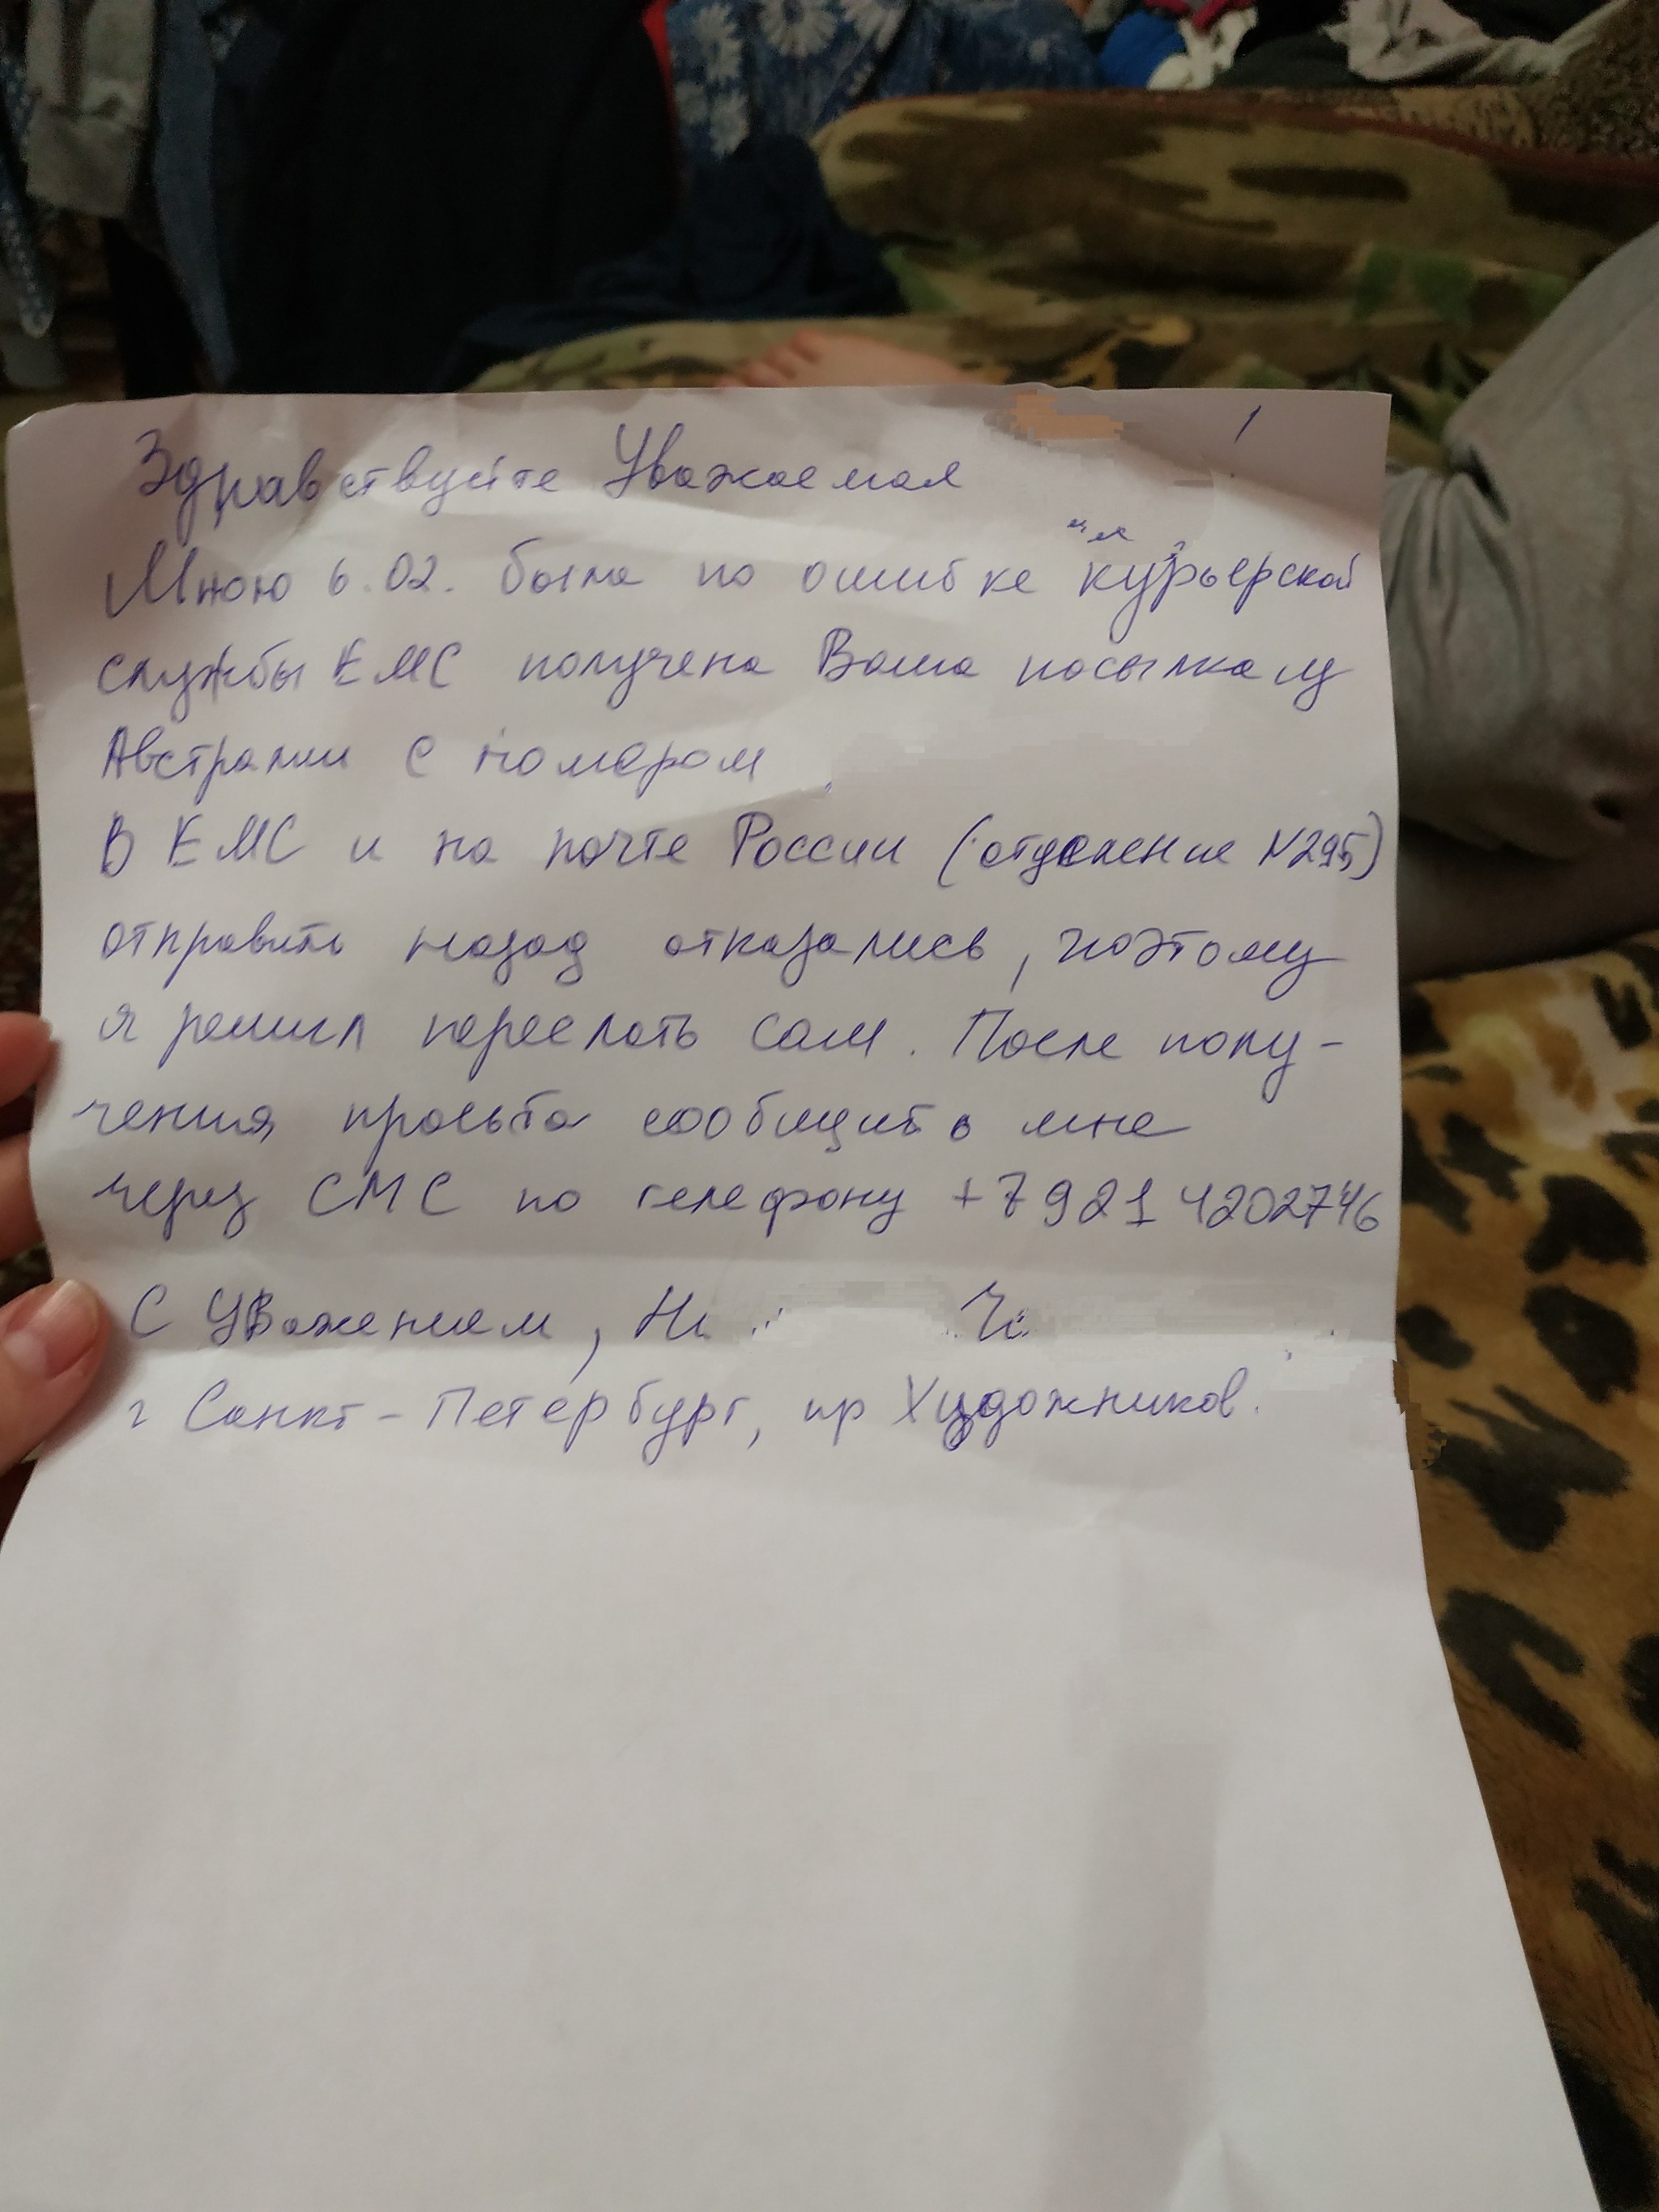 Здравствуйте Уважаемая
Мною 6.02. была по ошибке курьерской
службы ЕМС получена Ваша посылка из
Австралии с номером
В ЕМС и на почте России (отделение N295)
отправить назад отказались, поэтому
я решил переслать сам. После полу-
чения просьба сообщить мне
через СМС по телефону +7 921 4202746
С Уважением,
г Санкт-Петербург, пр Художников.